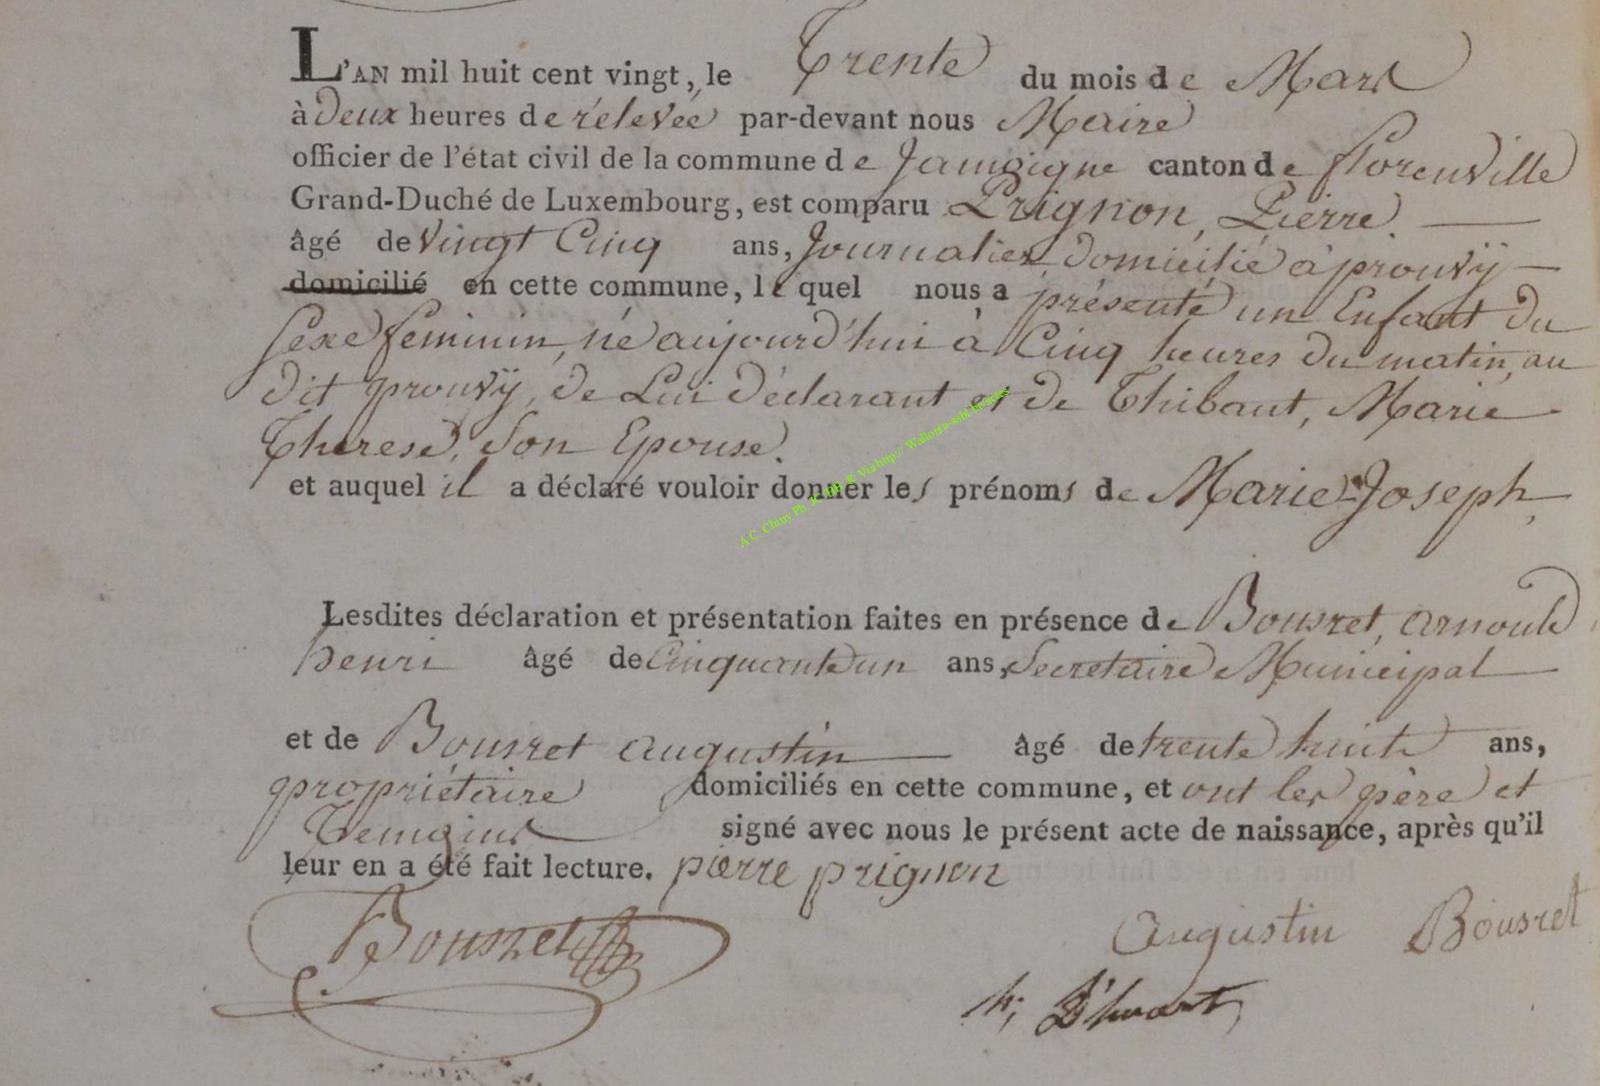 L'AN mil huit cent vingt, le Trente du mois de Mars
à Deux heures de rélevée par-devant nous Maire
officier de l'état civil de la commune de Jamoigne canton de florenville
Grand-Duché de Luxembourg, est comparu Prignon, Pierre.
âgé de vingt Cinq ans, Journalier, domicilié à prouvÿ
domicilié en cette commune, le quel nous a présenté un Enfant du
Sexe feminin, né aujourd'hui à Cinq heures du matin, au
dit prouvÿ, de Lui déclarant et de Thibaut, Marie
Therese, Son Epouse.
et auquel il a déclaré vouloir donner les prénoms de Marie-Joseph
Lesdites déclaration et présentation faites en présence de Bousret, arnould
henri âgé de Cinquante un ans, Secretaire Municipal
et de Bousret augustin âgé de trente huit ans,
propriétaire domiciliés en cette commune, et ont les père et
Temoins signé avec nous le présent acte de naissance, après qu'il
leur en a été fait lecture. pierre prignon
Bousret
augustin Bousret
h; D'huart
A.C. Chiny Ph. Via http:// Wallonia-asbl